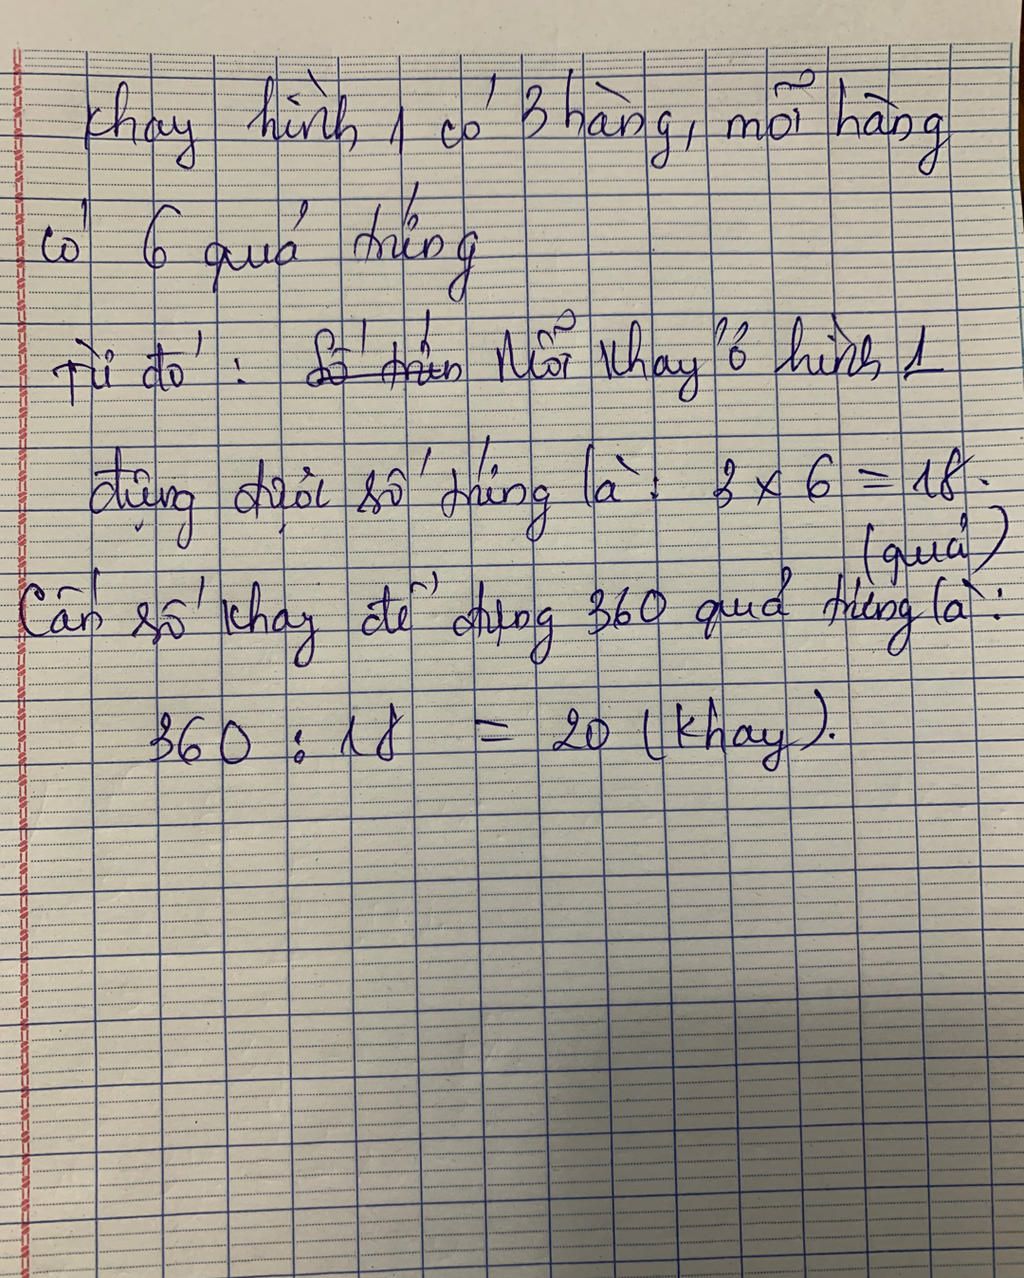 Khay hình 1 có 3 hàng, mỗi hàng
có 6 quả trứng
Từ đó : Số trứn Mỗi khay ở hình 1
đựng được số trứng là: 3 x 6 = 18.
(quả)
Cần số khay để đựng 360 quả trứng là:
360 : 18 = 20 (khay).